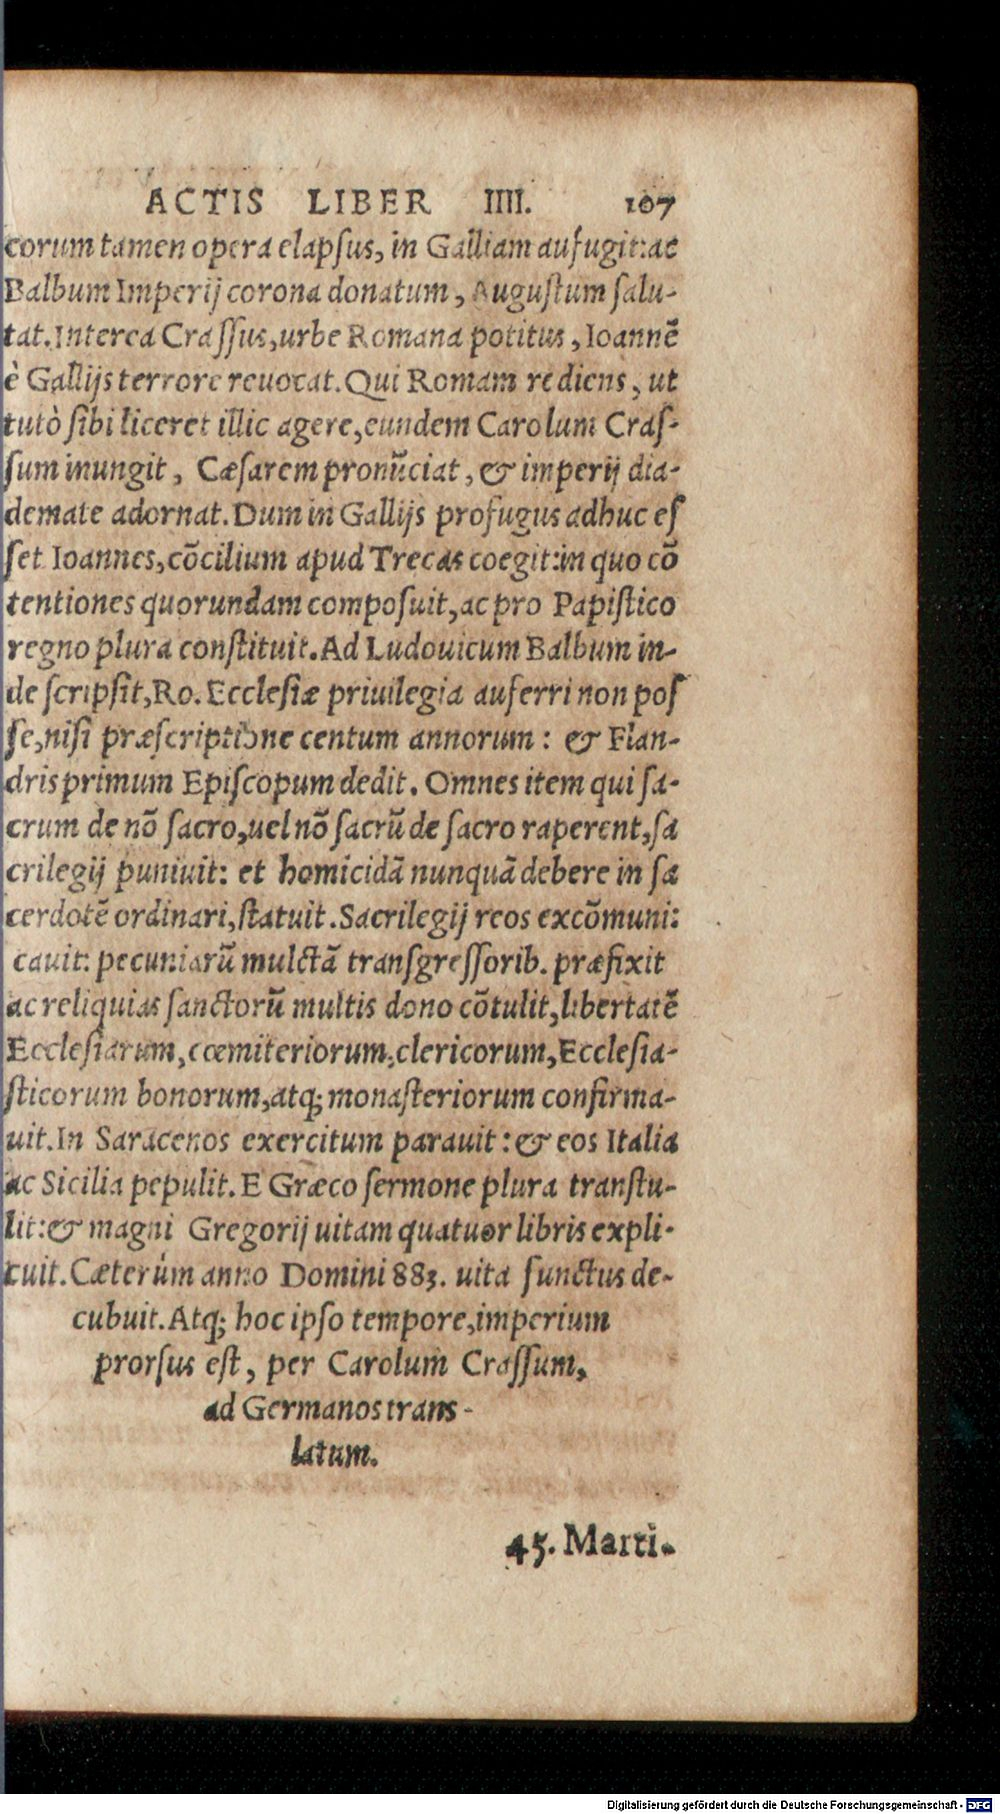 ACTIS LIBER IIII. 107
corum tamen opera elapſus, in Galliam aufugit: ac
Balbum Imperij corona donatum, Auguſtum ſalu-
tat. Interea Craſſus, urbe Romana potitus, Ioannē
è Gallijs terrore reuocat. Qui Romam rediens, ut
tutò ſibi liceret illic agere, eundem Carolum Craſ-
ſum inungit, Cæſarem pronũciat, & imperij dia-
demate adornat. Dum in Gallijs profugus adhuc eſ
ſet Ioannes, cōcilium apud Trecas coegit: in quo cō
tentiones quorundam compoſuit, ac pro Papiſtico
regno plura conſtituit. Ad Ludouicum Balbum in-
de ſcripſit, Ro. Eccleſiæ priuilegia auferri non poſ
ſe, niſi præſcriptione centum annorum: & Flan-
dris primum Epiſcopum dedit. Omnes item qui ſa-
crum de nō ſacro, uel nō ſacrũ de ſacro raperent, ſa
crilegij puniuit: et homicidā nunquā debere in ſa
cerdotē ordinari, ſtatuit. Sacrilegij reos excōmuni:
cauit: pecuniarũ mulctā tranſgreſſorib. præfixit
ac reliquias ſanctorũ multis dono cōtulit, libertatē
Eccleſiarum, cœmiteriorum, clericorum, Eccleſia-
ſticorum bonorum, atq; monaſteriorum confirma-
uit. In Saracenos exercitum parauit: & eos Italia
ac Sicilia pepulit. E Græco ſermone plura tranſtu-
lit: & magni Gregorij uitam quatuor libris expli-
cuit. Cæterùm anno Domini 883. uita functus de-
cubuit. Atq; hoc ipſo tempore, imperium
prorſus eſt, per Carolum Craſſum,
ad Germanos trans-
latum.
45. Marti-
Digitalisierung gefördert durch die Deutsche Forschungsgemeinschaft - DFG